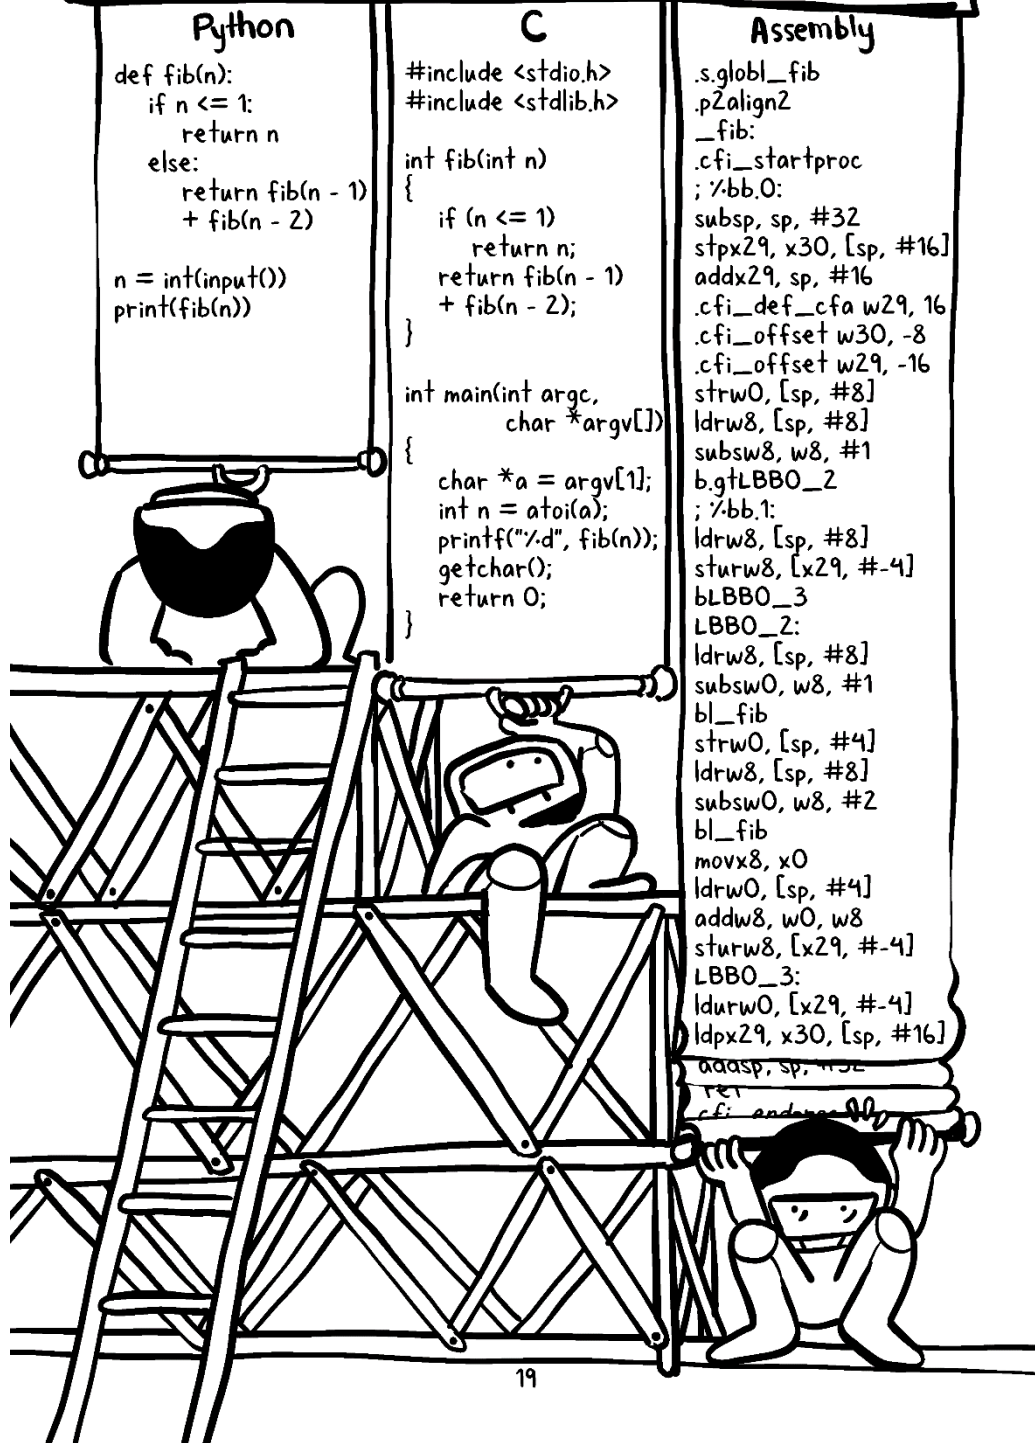 Python
def fib(n):
if n <= 1:
return n
else:
return fib(n - 1)
+ fib(n - 2)
n = int(input())
print(fib(n))
C
#include <stdio.h>
#include <stdlib.h>
int fib(int n)
{
if (n <= 1)
return n;
return fib(n - 1)
+ fib(n - 2);
}
int main(int argc,
char *argv[])
{
char *a = argv[1];
int n = atoi(a);
printf("%d", fib(n));
getchar();
return 0;
}
Assembly
.s.globl_fib
.p2align2
_fib:
.cfi_startproc
; %bb.0:
subsp, sp, #32
stpx29, x30, [sp, #16]
addx29, sp, #16
.cfi_def_cfa w29, 16
.cfi_offset w30, -8
.cfi_offset w29, -16
strw0, [sp, #8]
ldrw8, [sp, #8]
subsw8, w8, #1
b.gtLBB0_2
; %bb.1:
ldrw8, [sp, #8]
sturw8, [x29, #-4]
bLBB0_3
LBB0_2:
ldrw8, [sp, #8]
subsw0, w8, #1
bl_fib
strw0, [sp, #4]
ldrw8, [sp, #8]
subsw0, w8, #2
bl_fib
movx8, x0
ldrw0, [sp, #4]
addw8, w0, w8
sturw8, [x29, #-4]
LBB0_3:
ldurw0, [x29, #-4]
ldpx29, x30, [sp, #16]
addsp, sp, #32
ret
19